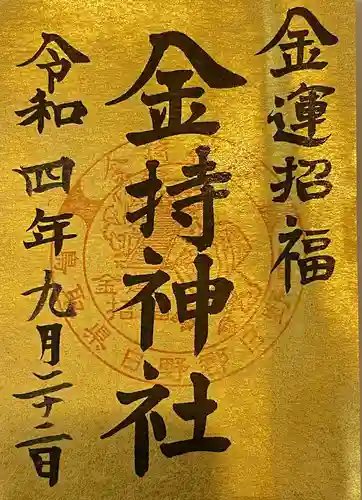 金運招福
金持神社
令和四年九月二十二日